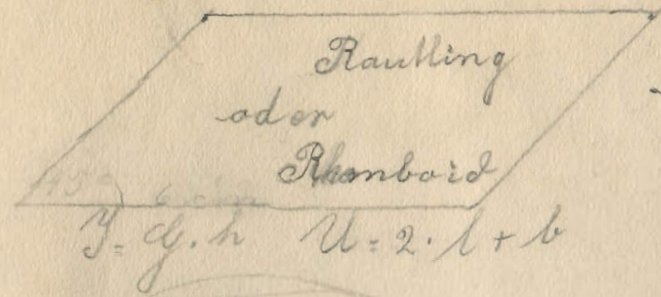 Rautling
oder
Rhomboid
45° 6 cm
J = G . h U = 2 . l + b